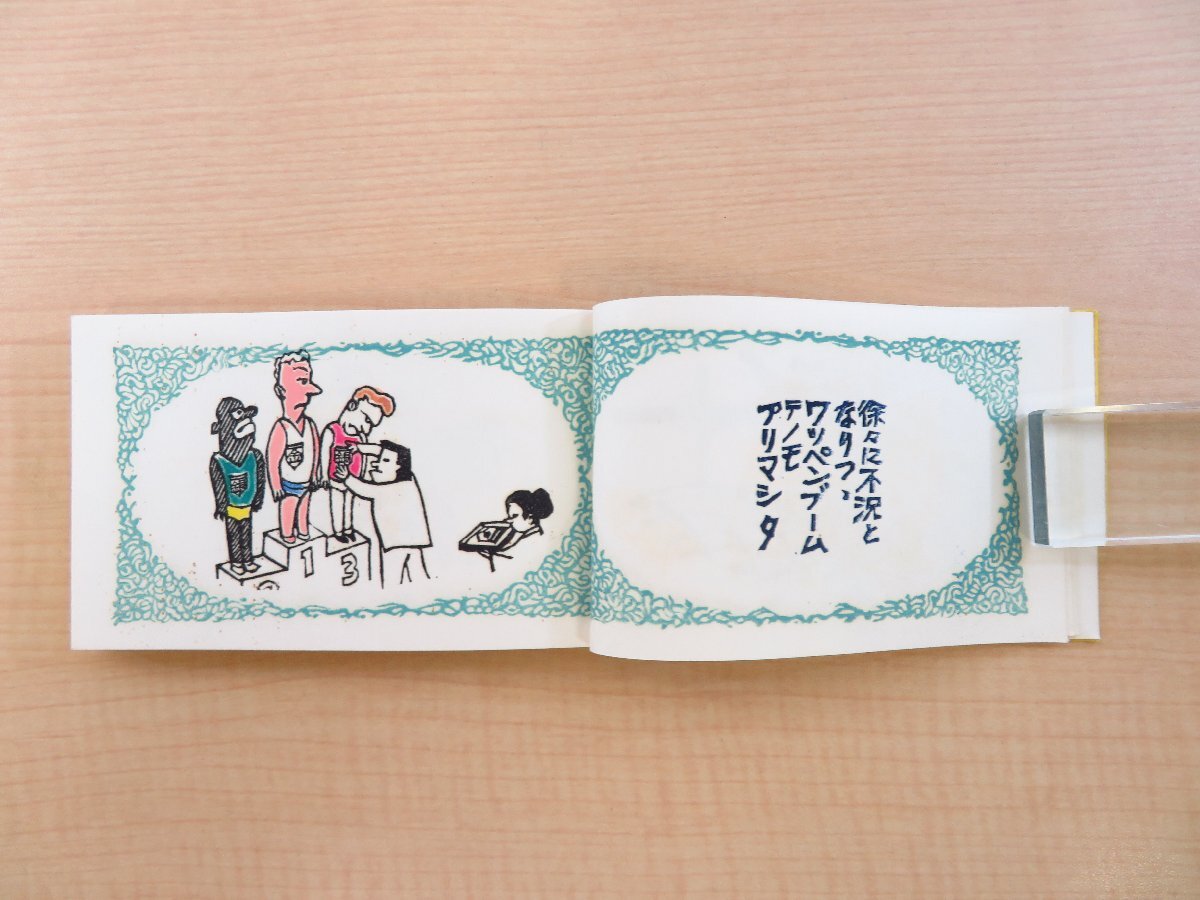 徐々に不況と
なりつゝ
ワッペンブーム
テノモ
アリマシタ
1
3